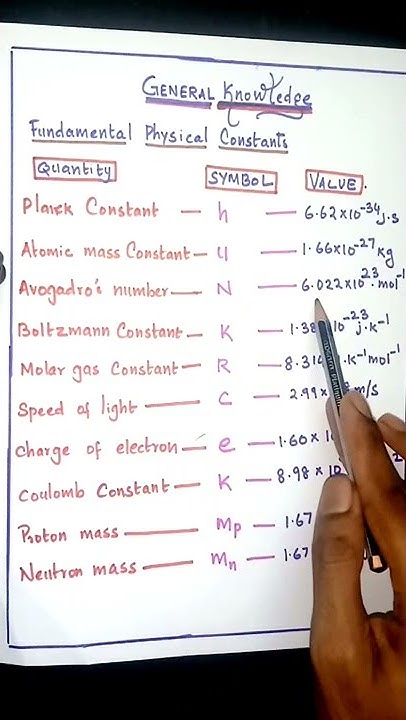 GENERAL Knowledge
Fundamental Physical Constants
Quantity SYMBOL VALUE.
Planck Constant — h — 6.62×10⁻³⁴j.s
Atomic mass Constant — u — 1.66×10⁻²⁷kg
Avogadro's number — N — 6.022×10²³.mol⁻¹
Boltzmann Constant — K — 1.38 10⁻²³j.k⁻¹
Molar gas Constant — R — 8.314 .k⁻¹mol⁻¹
Speed of light — C — 2.99× m/s
Charge of electron — e — 1.60×
Coulomb Constant — K — 8.98×10
Proton mass — Mp — 1.67
Neutron mass — Mn — 1.67